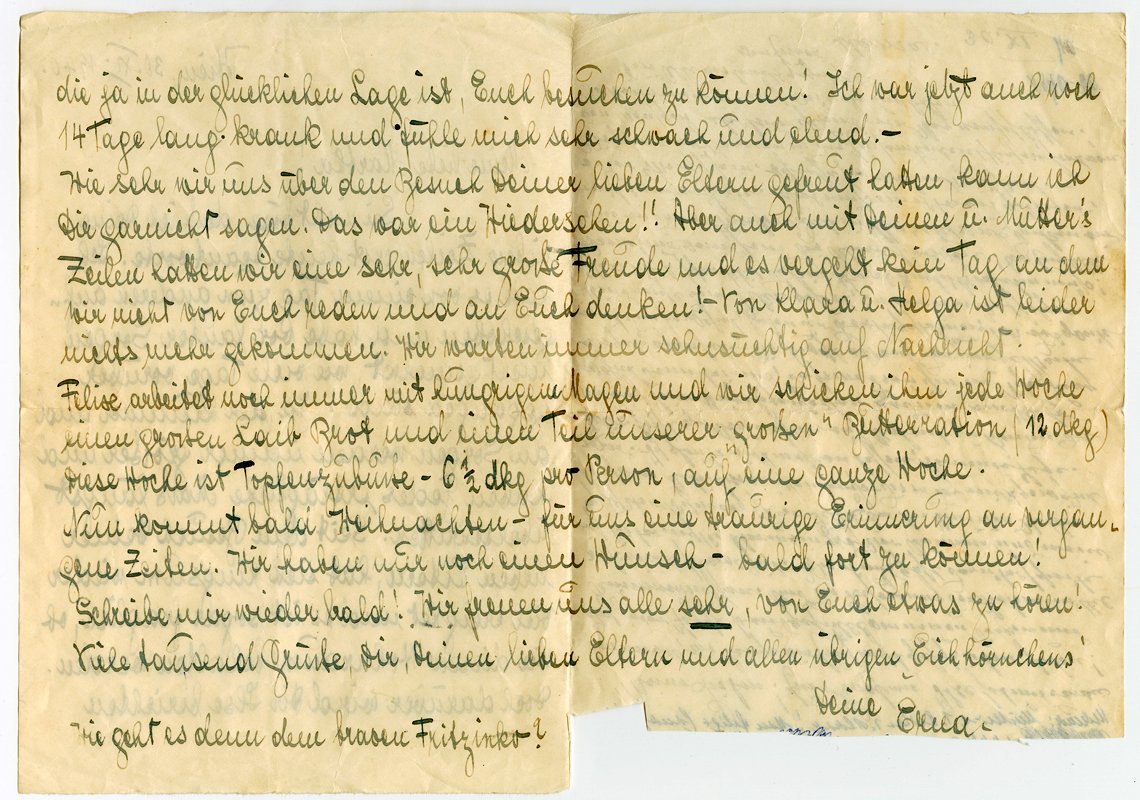 die ja in der glücklichen Lage ist, Euch besuchen zu können! Ich war jetzt auch noch
14 Tage lang krank und fühle mich sehr schwach und elend. –
Wie sehr wir uns über den Besuch Deiner lieben Eltern gefreut hatten, kann ich
Dir garnicht sagen. Das war ein Wiedersehen!! Aber auch mit Deinen u. Mutter's
Zeilen hatten wir eine sehr, sehr große Freude und es vergeht kein Tag an dem
wir nicht von Euch reden und an Euch denken! – Von Klara u. Helga ist leider
nichts mehr gekommen. Wir warten immer sehnsüchtig auf Nachricht.
arbeitet noch immer mit hungrigem Magen und wir schicken ihm jede Woche
einen großen Laib Brot und einen Teil unserer „großen" Butterration (12 dkg)
Diese Woche ist Topfen-zubuße – 6 ½ dkg pro Person, auf eine ganze Woche.
Nun kommt bald Weihnachten – für uns eine traurige Erinnerung an vergan-
gene Zeiten. Wir haben nur noch einen Wunsch – bald fort zu können!
Schreibe mir wieder bald! Wir freuen uns alle sehr, von Euch etwas zu hören!
Viele tausend Grüße, Dir, Deinen lieben Eltern und allen übrigen Eichhörnchens!
Deine Erna –
Wie geht es denn dem braven Fritzinko?